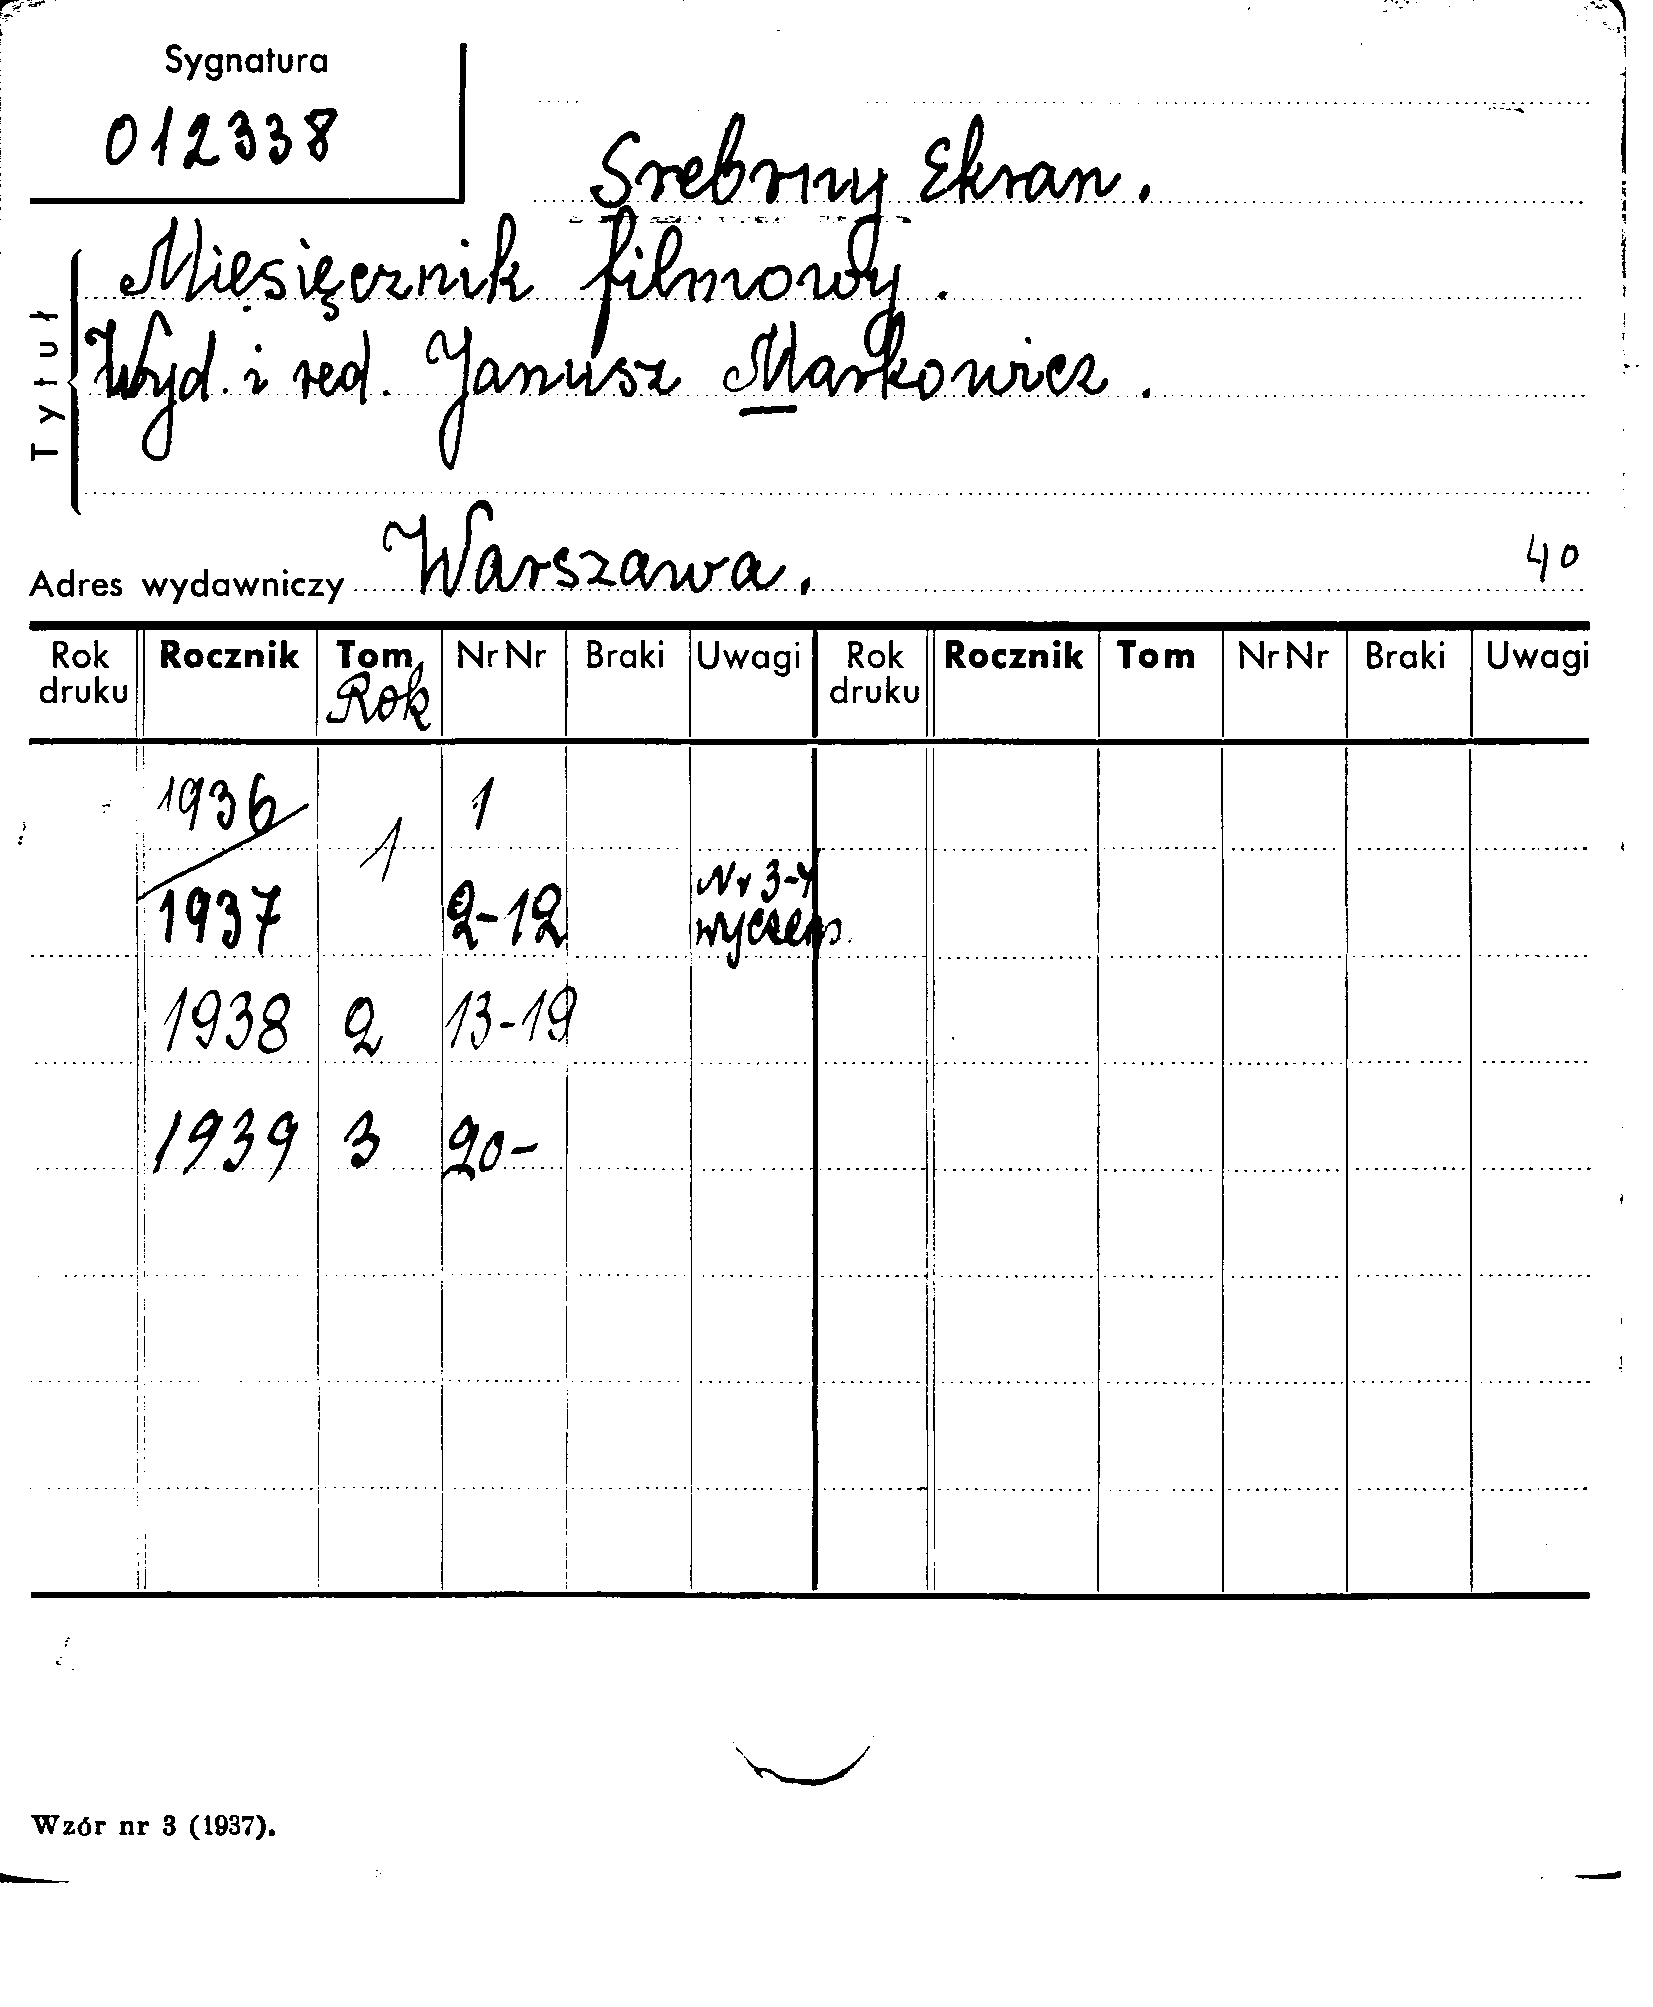 Sygnatura
012338
Srebrny Ekran.
Miesięcznik filmowy.
Wyd. i red. Janusz Markowicz.
Tytuł
Adres wydawniczy Warszawa. 40
Rok druku Rocznik Tom, Rok Nr Nr Braki Uwagi Rok druku Rocznik Tom Nr Nr Braki Uwagi
1936 1 1
1937 2-12 Nr 3-4 wyczerp.
1938 2 13-19
1939 3 20-
Wzór nr 3 (1937).